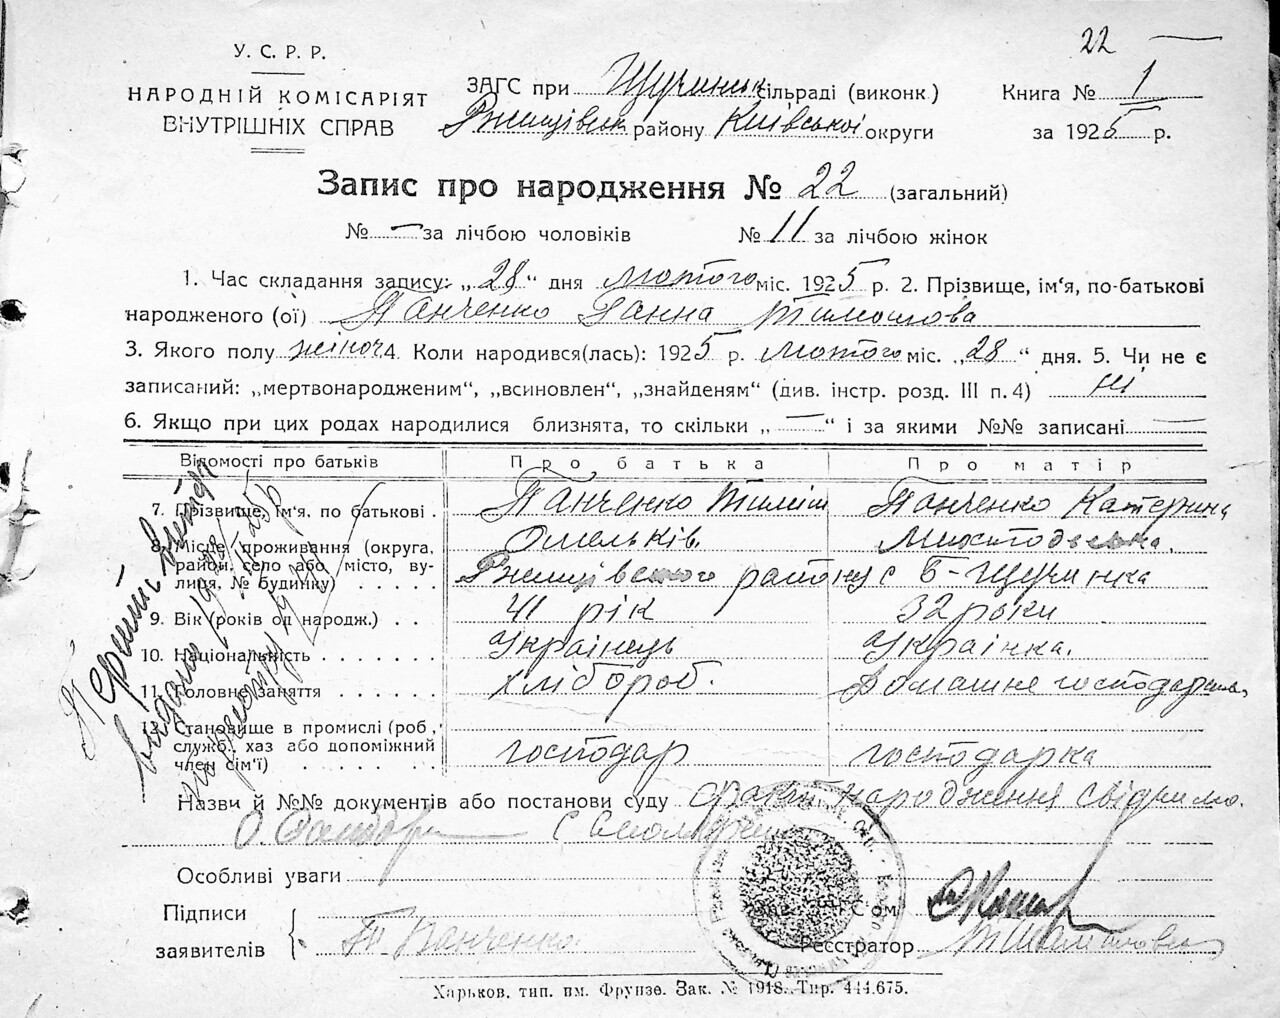 22 —
У. С. Р. Р.
НАРОДНІЙ КОМІСАРІЯТ
ВНУТРІШНІХ СПРАВ
ЗАГС при Щучинськ сільраді (виконк.)
Ржищівськ району Київської округи
Книга № 1
за 1925 р.
Запис про народження № 22 (загальний)
№ — за лічбою чоловіків № 11 за лічбою жінок
1. Час складання запису: „28“ дня лютого міс. 1925 р. 2. Прізвище, ім‘я, по-батькові
народженого (ої) Панченко Ганна Тимошова
3. Якого полу жіноч 4. Коли народився(лась): 1925 р. лютого міс. „28“ дня. 5. Чи не є
записаний: „мертвонародженим“, „всиновлен“, „знайденям“ (див. інстр. розд. III п. 4) ні
6. Якщо при цих родах народилися близнята, то скільки „—“ і за якими №№ записані —
Відомості про батьків Про батька Про матір
7. Прізвище, ім‘я, по батькові . Панченко Тиміш Панченко Катерина
Омельків.
8. Місце проживання (округа,
район, село або місто, ву-
лиця, № будинку) Ржищівського району с Б-Щучинка
9. Вік (років од народж.) . . 41 рік 32 роки
10. Національність Українець Українка.
11. Головне заняття хлібороб. Домашне
12. Становище в промислі (роб.,
служб., хаз або допоміжний
член сім‘ї) господар господарка
Перший
видано
Назви й №№ документів або постанови суду факт народження свідчимо.
Особливі уваги
Підписи
заявителів
Т Панченко
Реєстратор
Харьков. тип. им. Фрунзе. Зак. № 1918. Тир. 444.675.